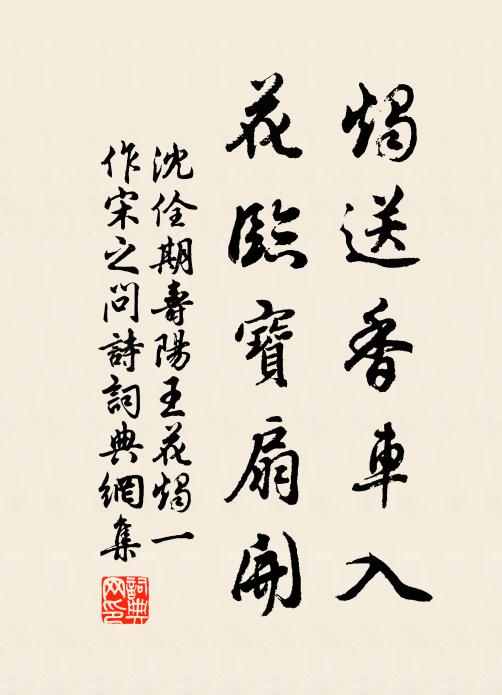 燭送香車入
花臨寶扇開
沈佺期壽陽王花燭一
作宋之问詩詞典網集
詞典
网印